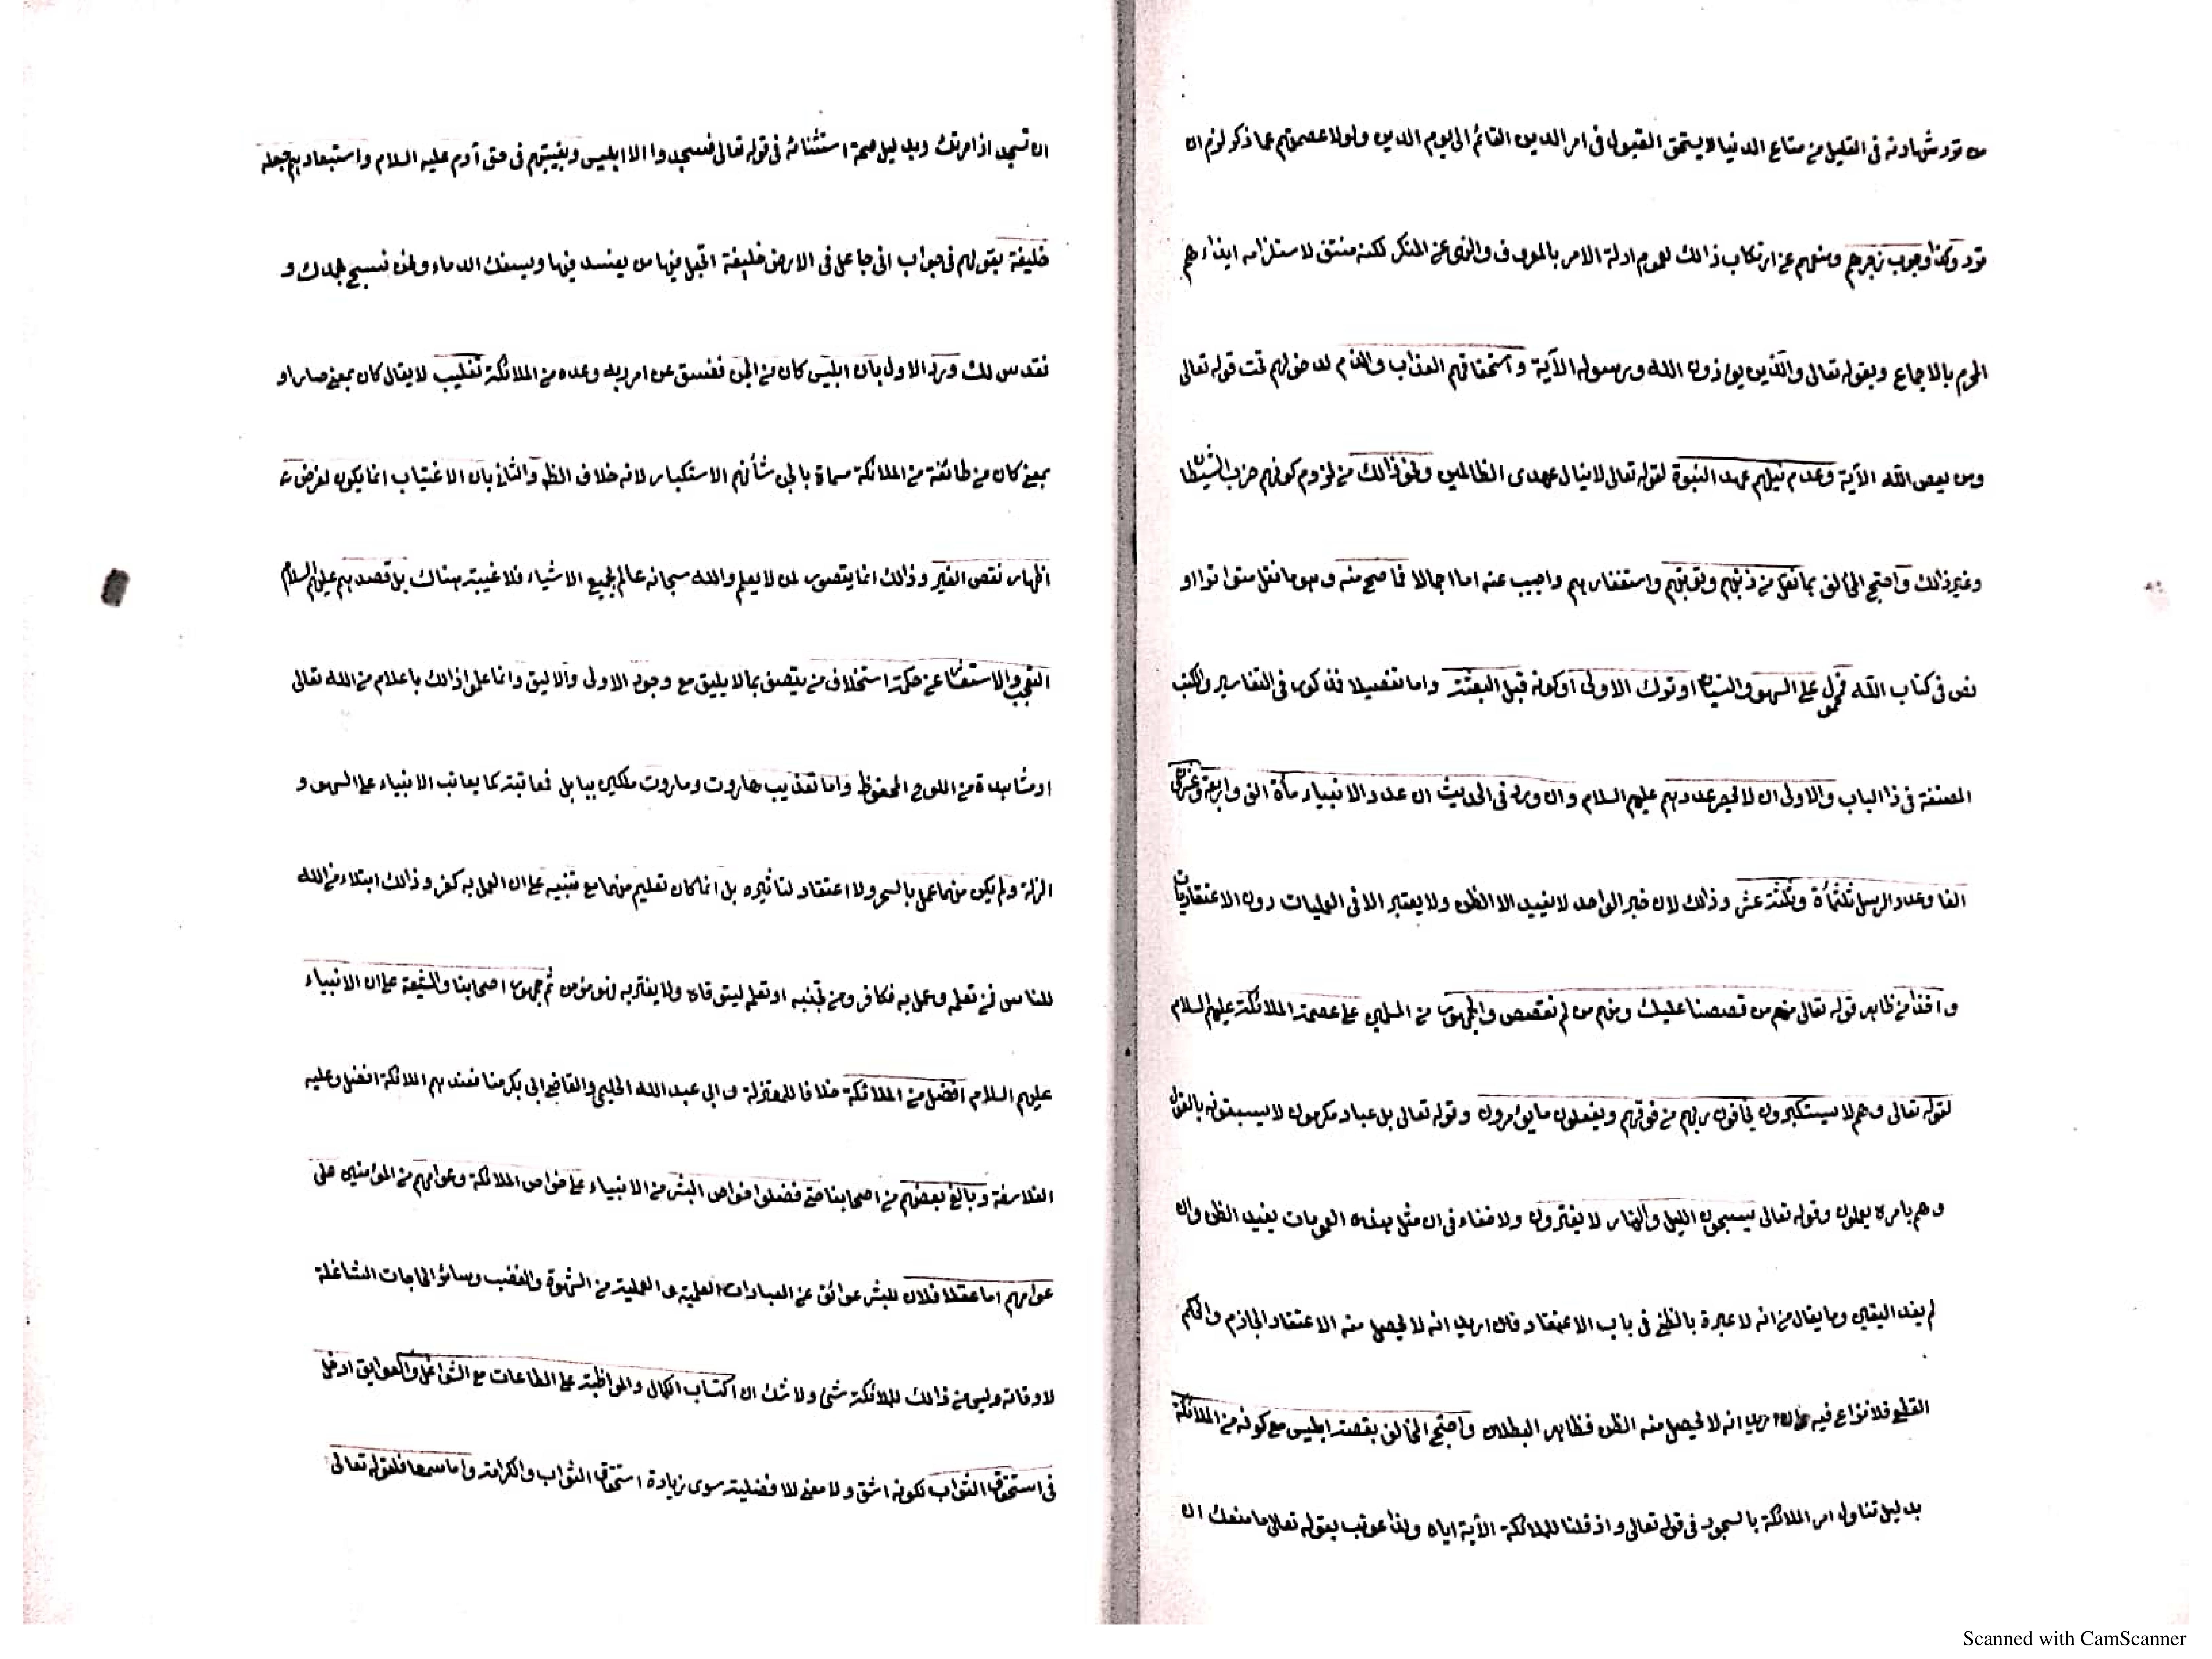 من ترد شهادته فى القليل من متاع الدنيا لا يستحق القبول فى امر الدين القائم الى يوم الدين ولولا عصمتهم عما ذكر لزم ان
ترد وكذا وجوب زجرهم ومنعهم عن ارتكاب ذالك لعموم ادلة الامر بالمعروف والنهى عن المنكر لكنه منتف لاستلزامه ايذاءهم
المحرم بالاجماع وبقوله تعالى والذين يؤذون الله ورسوله الآية واستحقاقهم العذاب والذم لدخولهم تحت قوله تعالى
ومن يعص الله الآية وعدم نيلهم عهد النبوة لقوله تعالى لا ينال عهدى الظالمين ونحو ذالك من لزوم كونهم حزب الشيطان
وغير ذالك واحتج المخالف بما نقل من ذنبهم وتوبتهم واستغفارهم واجيب عنه اما اجمالا فما صح منه وهو ما نقل متواترا او
نص فى كتاب الله فمحمول على السهو والنسيان او ترك الاولى او كونه قبل البعثة واما تفصيلا فمذكور فى التفاسير والكتب
المصنفة فى ذا الباب والاولى ان لا يحصر عددهم عليهم السلام وان ورد فى الحديث ان عدد الانبياء مأة الف واربعة وعشرون
الفا وعدد الرسل ثلثمأة وثلثة عشر وذالك لان خبر الواحد لا يفيد الا الظن ولا يعتبر الا فى العمليات دون الاعتقاديات
واخذا من ظاهر قوله تعالى منهم من قصصنا عليك ومنهم من لم نقصص والجمهور من المسلمين على عصمة الملائكة عليهم السلام
لقوله تعالى وهم لا يستكبرون يخافون ربهم من فوقهم ويفعلون ما يؤمرون وقوله تعالى بل عباد مكرمون لا يسبقونه بالقول
وهم بامره يعملون وقوله تعالى يسبحون الليل والنهار لا يفترون ولا خفاء فى ان مثل هذه العمومات يفيد الظن وان
لم يفد اليقين وما يقال من انه لا عبرة بالظن فى باب الاعتقاد فان اريد انه لا يحصل منه الاعتقاد الجازم والحكم
القطعى فلا نزاع فيه وان اريد انه لا يحصل منه الظن فظاهر البطلان واحتج المخالف بقصة ابليس مع كونه من الملائكة
بدليل تناول امر الملائكة بالسجود فى قوله تعالى واذ قلنا للملائكة الآية اياه ولذا عوتب بقوله تعالى ما منعك ان
ان تسجد اذ امرتك وبدليل صحة استثنائه فى قوله تعالى فسجدوا الا ابليس وبغيبتهم فى حق آدم عليه السلام واستبعادهم جعله
خليفة بقولهم فى جواب انى جاعل فى الارض خليفة اتجعل فيها من يفسد فيها ويسفك الدماء ونحن نسبح بحمدك و
نقدس لك ورد الاول بان ابليس كان من الجن ففسق عن امر ربه وعده من الملائكة تغليب لا يقال كان بمعنى صار او
بمعنى كان من طائفة من الملائكة مسماة بالجن شأنهم الاستكبار لانه خلاف الظ والثانى بان الاغتياب انما يكون لغرض ع
اظهار نقص الغير وذالك انما يتصور لمن لا يعلم والله سبحانه عالم بجميع الاشياء فلا غيبة هناك بل قصدهم عليهم السلام
التعجب والاستفسار عن حكمة استخلاف من يتصف بما لا يليق مع وجود الاولى والاليق وانما علموا ذالك باعلام من الله تعالى
او مشاهدة من اللوح المحفوظ واما تعذيب هاروت وماروت ملكين ببابل فمعاتبة كما يعاتب الانبياء على السهو و
الزلة ولم يكن منهما عمل بالسحر ولا اعتقاد لتاثيره بل انما كان تعليم منهما مع تنبيه على ان العمل به كفر وذالك ابتلاء من الله
للناس فمن تعلمه وعمل به فكافر ومن تجنبه او تعلمه ليتوقاه ولا يغتر به فهو مؤمن ثم جمهور اصحابنا والشيعة على ان الانبياء
عليهم السلام افضل من الملائكة خلافا للمعتزلة وابى عبد الله الحليمى والقاضى ابى بكر منا فعندهم الملائكة افضل وعليه
الفلاسفة وبالغ بعضهم من اصحابنا حتى فضلوا خواص البشر من الانبياء على خواص الملائكة وعوامهم من المؤمنين على
عوامهم اما عقلا فلان للبشر عوائق عن العبادات العلمية والعملية من الشهوة والغضب وسائر الحاجات الشاغلة
لاوقاته وليس من ذالك للملائكة شئ ولا شك ان اكتساب الكمال والمواظبة على الطاعات مع الشواغل والعوايق ادخل
فى استحقاق الثواب لكونه اشق ولا معنى للافضلية سوى زيادة استحقاق الثواب والكرامة واما سمعا فلقوله تعالى
Scanned with CamScanner